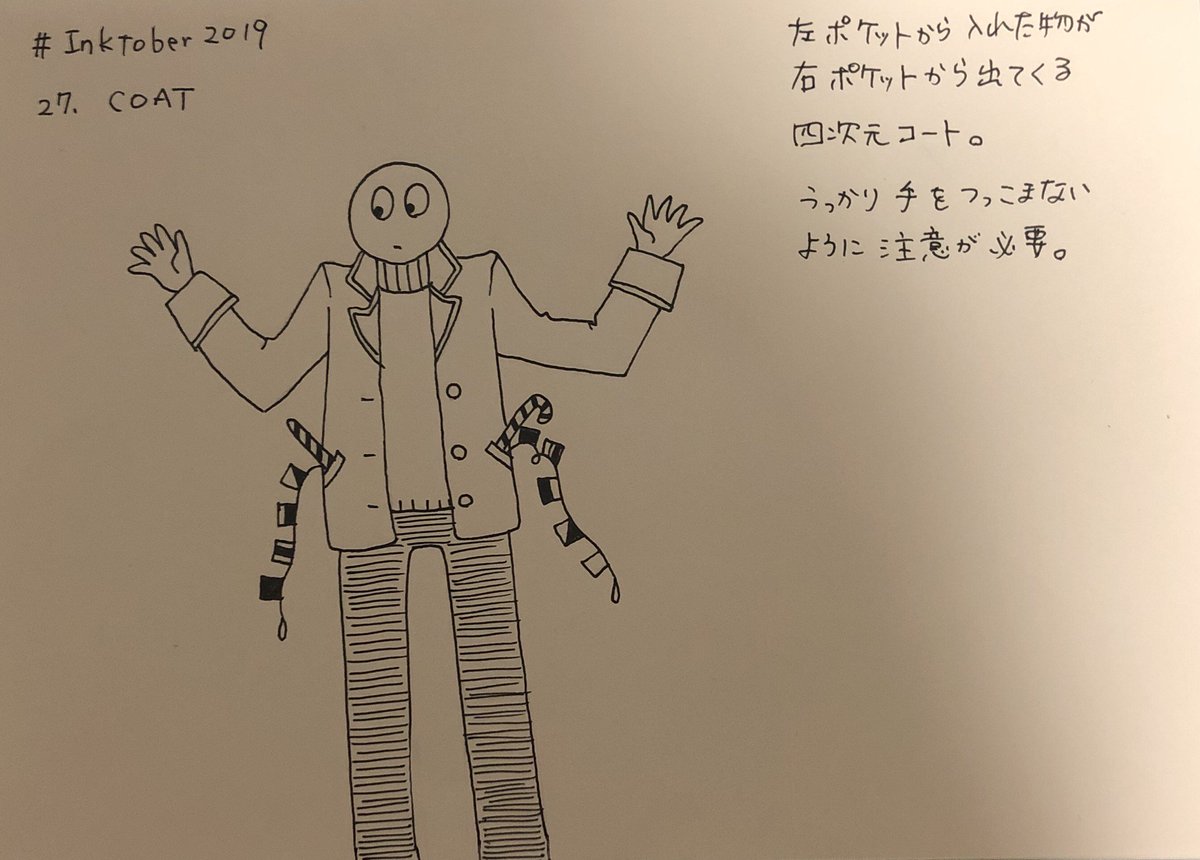 # Inktober 2019
27. COAT
左ポケットから入れた物が
右ポケットから出てくる
四次元コート。
うっかり手をつっこまない
ように注意が必要。